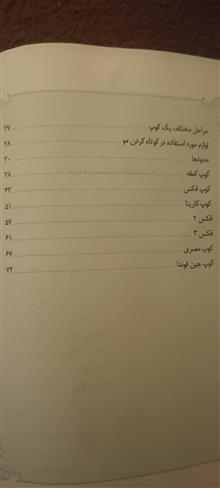 مراحل مختلف یک کوپ ۲۷
لوازم مورد استفاده در کوتاه کردن مو ۲۸
حدودها ۳۰
کوپ کمقه ۳۸
کوپ فکس ۴۳
کوپ کاریتا ۵۱
فکس ۲ ۵۷
فکس ۳ ۶۱
کوپ مصری ۶۷
کوپ جین فوندا ۷۲